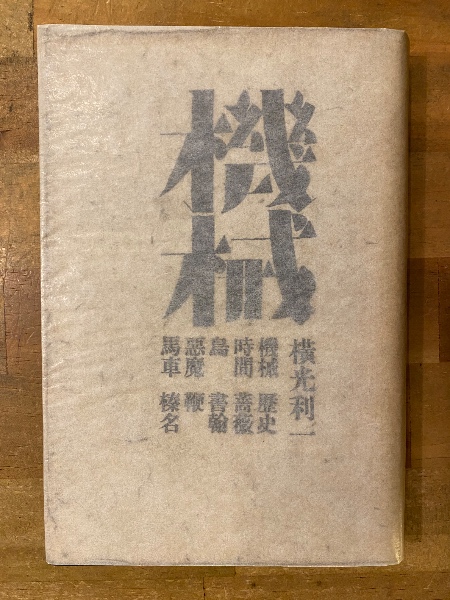 機械
横光利一
機械 歴史
時間 薔薇
鳥 書翰
悪魔 鞭
馬車 榛名